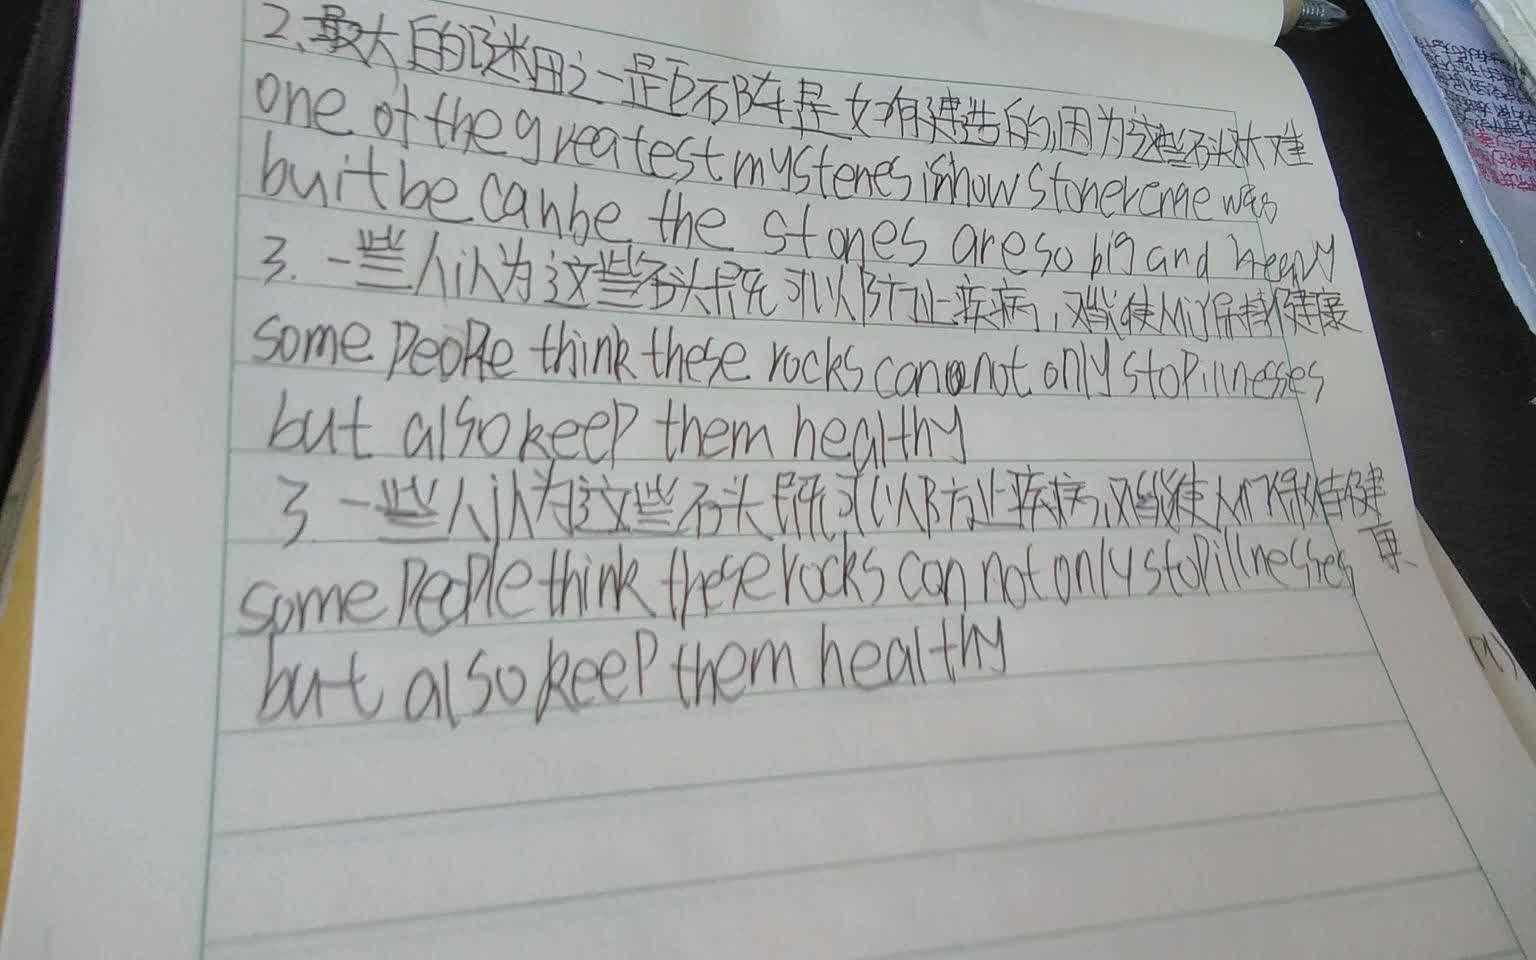 2、最大的谜团之一是巨石阵是如何建造的,因为这些石头太难
one of the greatest mystenes is how stonercnge was
buit be canbe the stones are so big and heavy
3. 一些人认为这些石头既可以防止疾病,又能使人们保持健康
some people think these rocks can not only stop illnesses
but also keep them healthy
3 一些人认为这些石头既可以防止疾病,又能使人们保持健
康
some people think these rocks can not only stop illnesses
but also keep them healthy